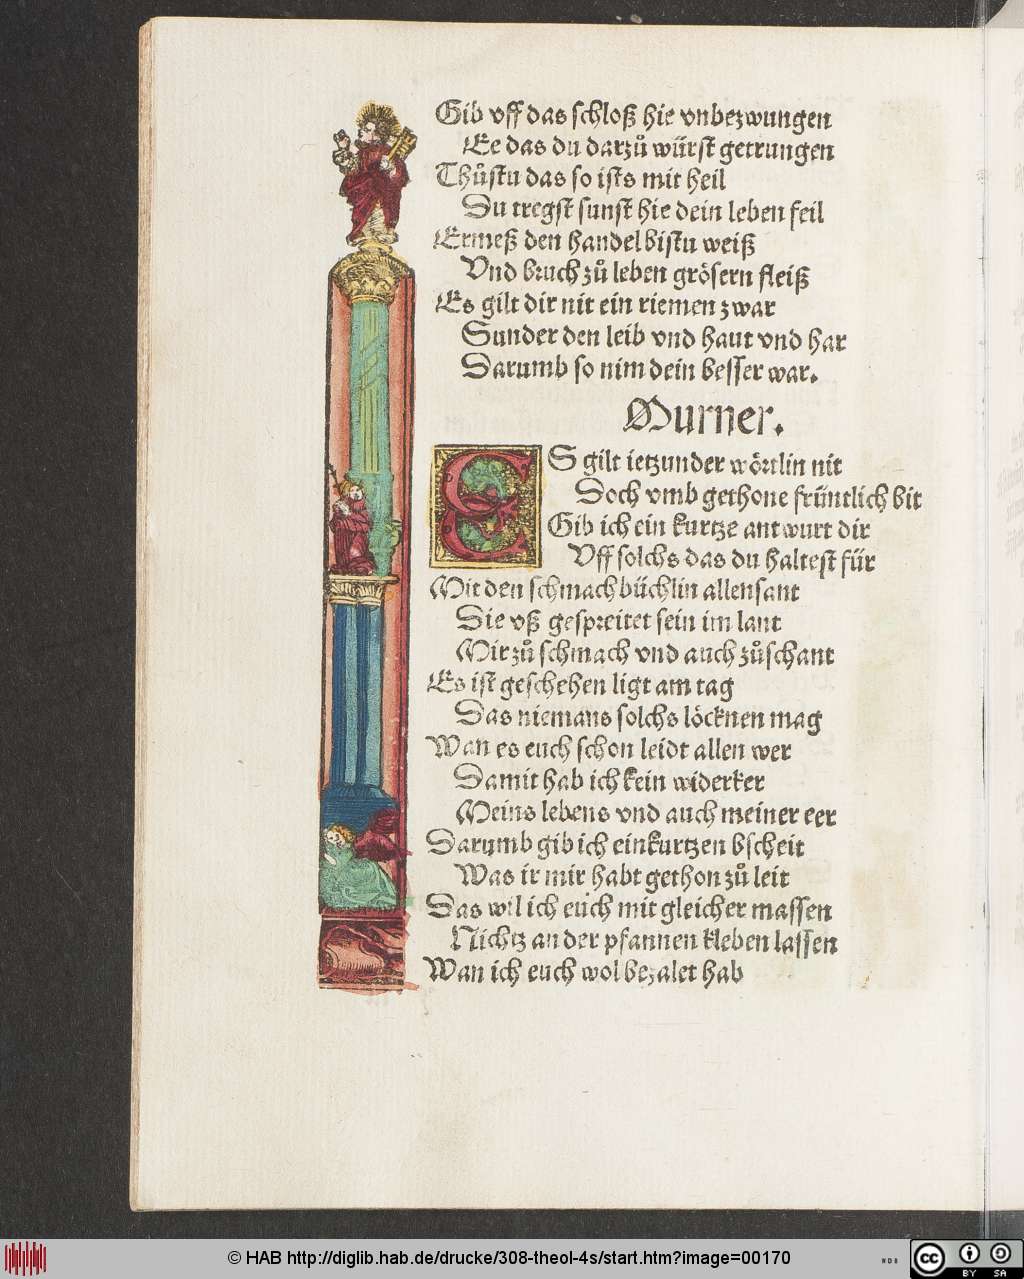 Gib vff das schloß hie vnbezwungen
Ee das du darzů würst getrungen
Thůstu das so ists mit heil
Du tregst sunst hie dein leben feil
Ermeß den handel bistu weiß
Vnd bruch zů leben grösern fleiß
Es gilt dir nit ein riemen zwar
Sunder den leib vnd haut vnd har
Darumb so nim dein besser war.
Murner.
ES gilt ietzunder wörtlin nit
Doch vmb gethone früntlich bit
Gib ich ein kurtze antwurt dir
Vff solchs das du haltest für
Mit den schmachbüchlin allensant
Die vß gespreitet sein im lant
Mir zů schmach vnd auch zůschant
Es ist geschehen ligt am tag
Das niemans solchs löcknen mag
Wan es euch schon leidt allen wer
Damit hab ich kein widerker
Meins lebens vnd auch meiner eer
Darumb gib ich einkurtzen bscheit
Was ir mir habt gethon zů leit
Das wil ich euch mit gleicher massen
Nichtz an der pfannen kleben lassen
Wan ich euch wol bezalet hab
© HAB http://diglib.hab.de/drucke/308-theol-4s/start.htm?image=00170
cc BY SA